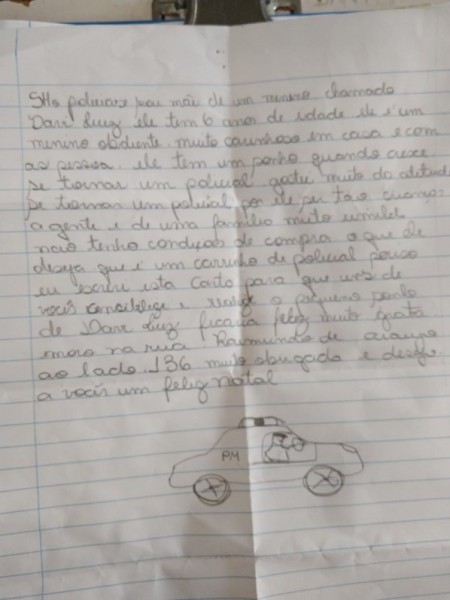 SHs policiais sou mãe de um menino chamado
Davi Luiz ele tem 6 anos de idade ele é um
menino obdiente muito carinhoso em casa e com
as pessoa. ele tem um sonho quando cresce
se tornar um policial gostei muito da atitude
se tornar um policial por ele ser tao criança
a gente é de uma familia muito umilde
não tenho condiças de compra o que ele
deseja que é um carrinho de policial
eu escrevi esta carta para que uns de
vocês e realize o pequeno sonho
de Davi Luiz ficaria feliz muito grata
moro na rua Raimundo de
ao lado 136 muito obrigado e desejo
a vocês um feliz natal
PM